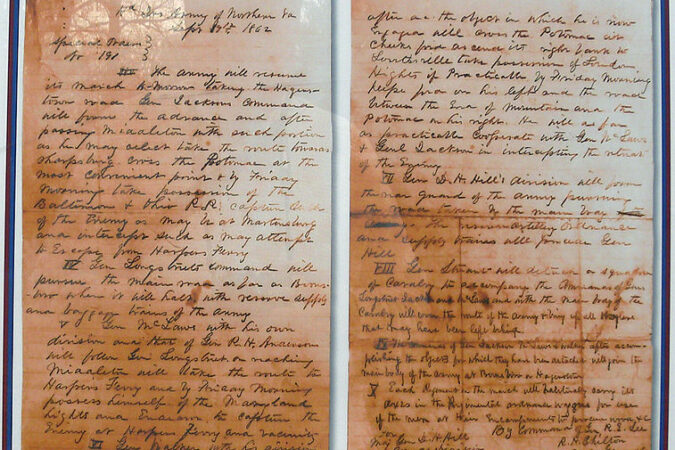 Hd Qrs Army of Northern Va
Sept 9th 1862
Special Orders
No 191
III The Army will resume
its march to-morrow taking the Hagers-
town road. Gen Jacksons Command
will form the advance and after
passing Middleton with such portion
as he may select take the route towards
Sharpsburg cross the Potomac at the
most convenient point & by Friday
Morning take possession of the
Baltimore & Ohio R.R. capture such
of the Enemy as may be at Martinsburg
and intercept such as may attempt
to Escape from Harpers Ferry
IV Gen Longstreets command will
pursue the main road as far as Boons-
boro where it will halt with reserve supply
and baggage trains of the army
V Gen McLaws with his own
division and that of Gen R. H. Anderson
will follow Gen Longstreet on reaching
Middleton will take the route to
Harpers Ferry and by Friday Morning
possess himself of the Maryland
Hights and Endeavor to capture the
Enemy at Harpers Ferry and vicinity
VI Gen Walker with his division
after accomplishing the object in which he is now
engaged will cross the Potomac at
Cheeks ford ascend its right bank to
Lovettsville take possession of Loudon
Hights if Practicable by Friday Morning
Keyes ford on his left and the road
between the End of Mountain and the
Potomac on his right. He will as far
as practicable Cooperate with Gen McLaws
& Genl Jackson in intercepting the retreat
of the Enemy
VII Gen D. H. Hill's division will form
the rear guard of the army pursuing
the road taken by the main body
The reserve artillery Ordnance
and supply trains will precede Gen
Hill
VIII Gen Stuart will detach a squadron
of Cavalry to accompany the Commands of Gens
Longstreet Jackson and McLaws and with the main body of the
Cavalry will cover the route of the Army & bring up all stragglers
that may have been left behind
IX The commands of Gen Jackson McLaws & Walker after accom-
plishing the objects for which they have been detached will join the
main body of the army at Boonsboro or Hagerstown
X Each Regiment on the march will habitually carry its
axes in the Regimental ordnance wagons for use
of the men at their Encampments to procure wood &c
By Command of Gen R. E. Lee
For
R. H. Chilton
Maj Gen D. H. Hill